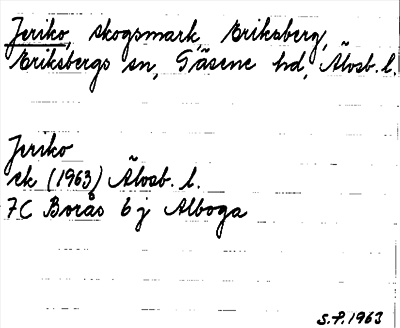 Jeriko, skogsmark, Eriksberg,
Eriksbergs sn, Gäsene hd, Älvsb. l.
Jeriko
ek (1963) Älvsb. l.
7C Borås 6 j Alboga
S.P. 1963